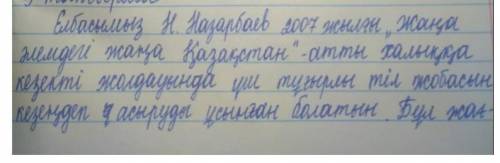 Елбасымыз Н. Назарбаев 2007 жылғы „Жаңа
әлемдегі жаңа Қазақстан“-атты халыққа
кезекті жолдауында үш тұғырлы тіл жобасын
кезеңдеп асыруды ұсынған болатын. Бұл жаң-